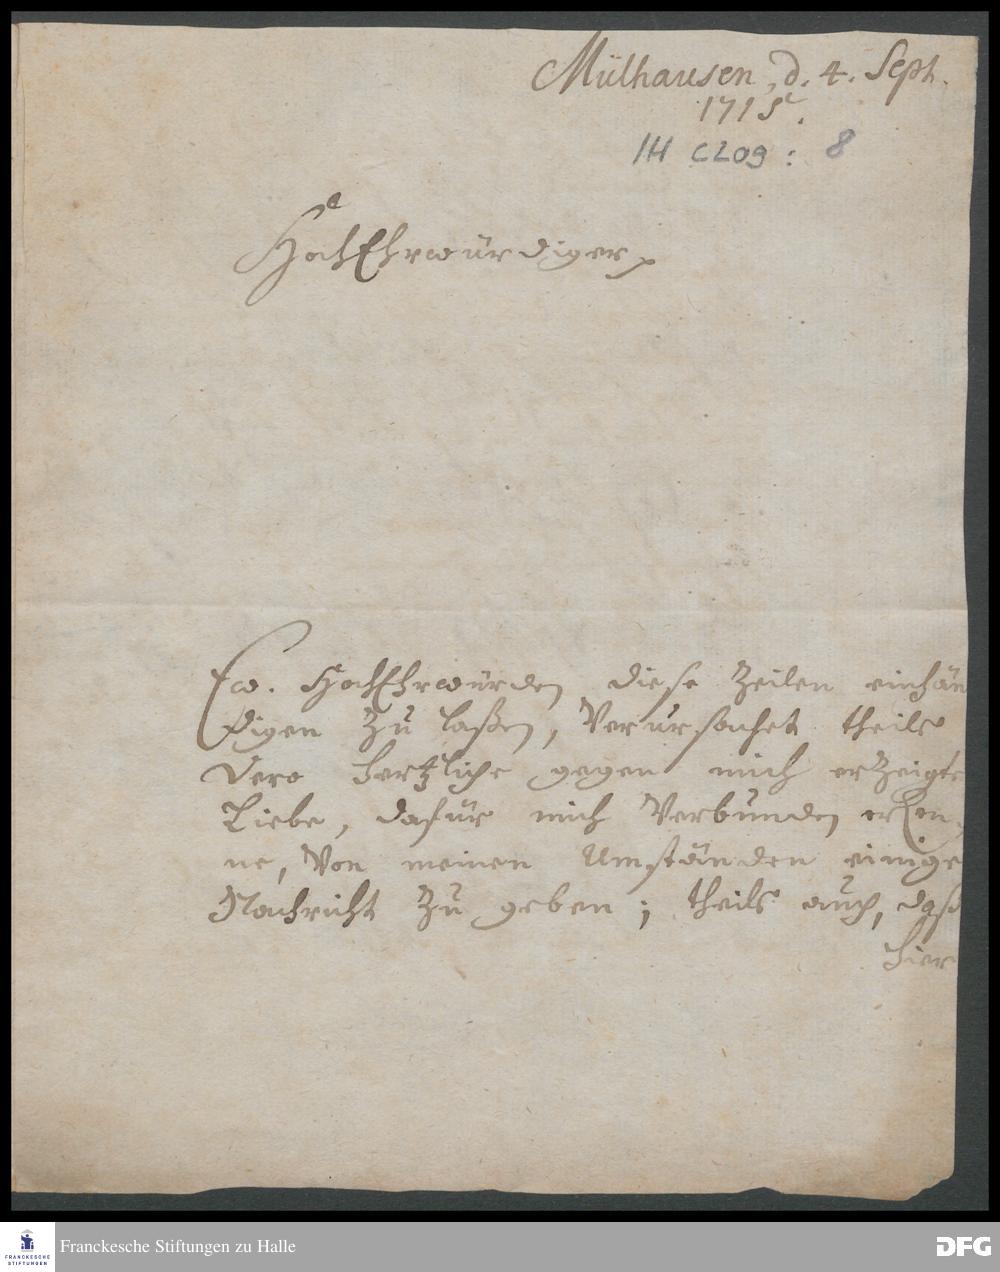 Mülhausen, d. 4. Sept.
1715.
1H C209 : 8
HochEhrwürdiger
Ew. HochEhrwürden diese Zeilen einhän
digen zu laßen, Verursachet theils
Dero hertzliche gegen mich erzeigte
Liebe, dafür mich Verbunden erken-
ne, Von meinen Umständen einige
Nachricht zu geben; theils auch, daß
hier
FRANCKESCHE
STIFTUNGEN
Franckesche Stiftungen zu Halle
DFG